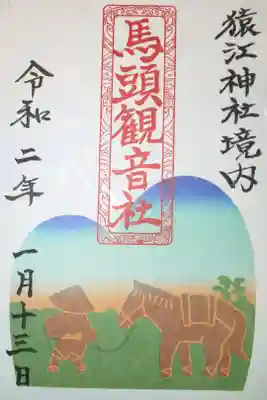 猿江神社境内
馬頭観音社
令和二年 一月十三日